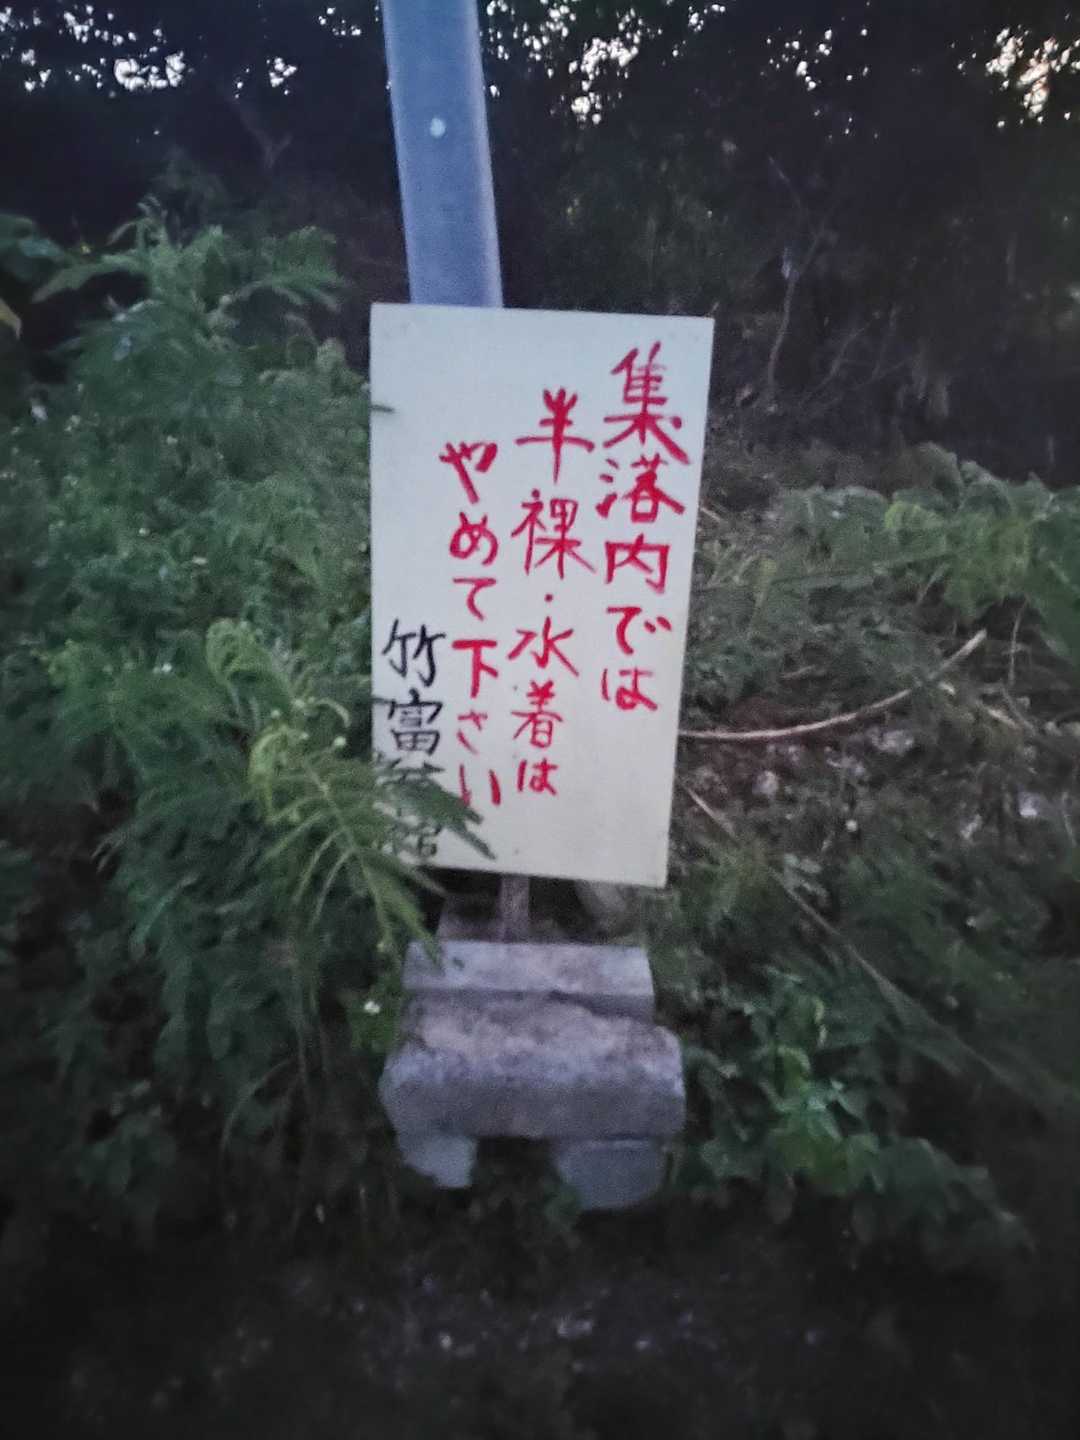 集落内では
半裸・水着は
やめて下さい
竹富